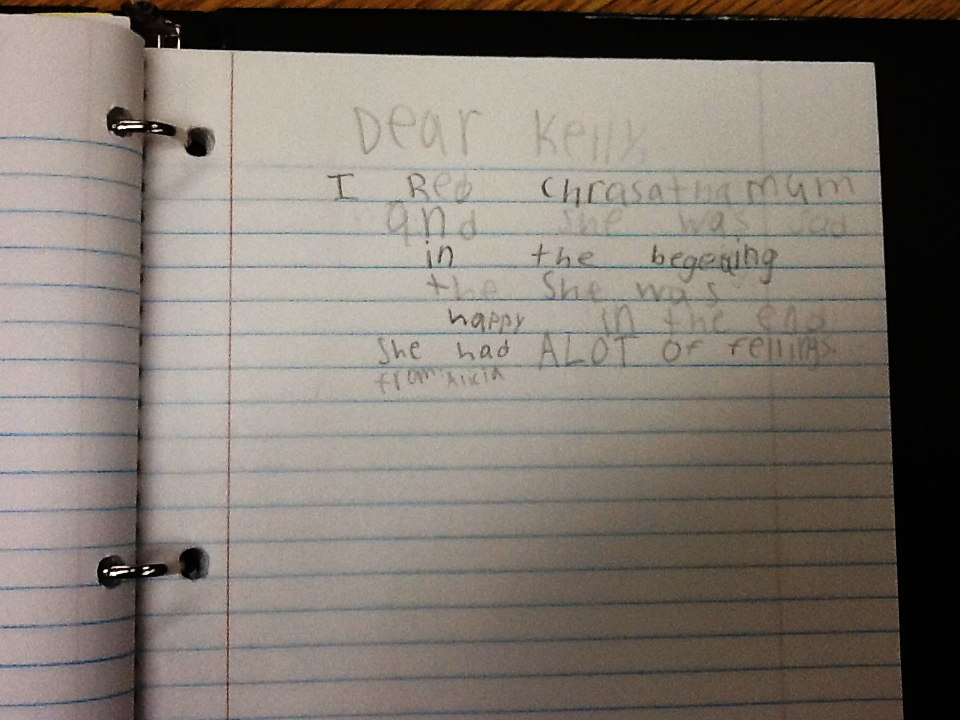 Dear Kelly,
I Red chrasathamum
and she was sad
in the begening
the She was
happy in the end
She had ALOT OF fellings.
from: Alicia